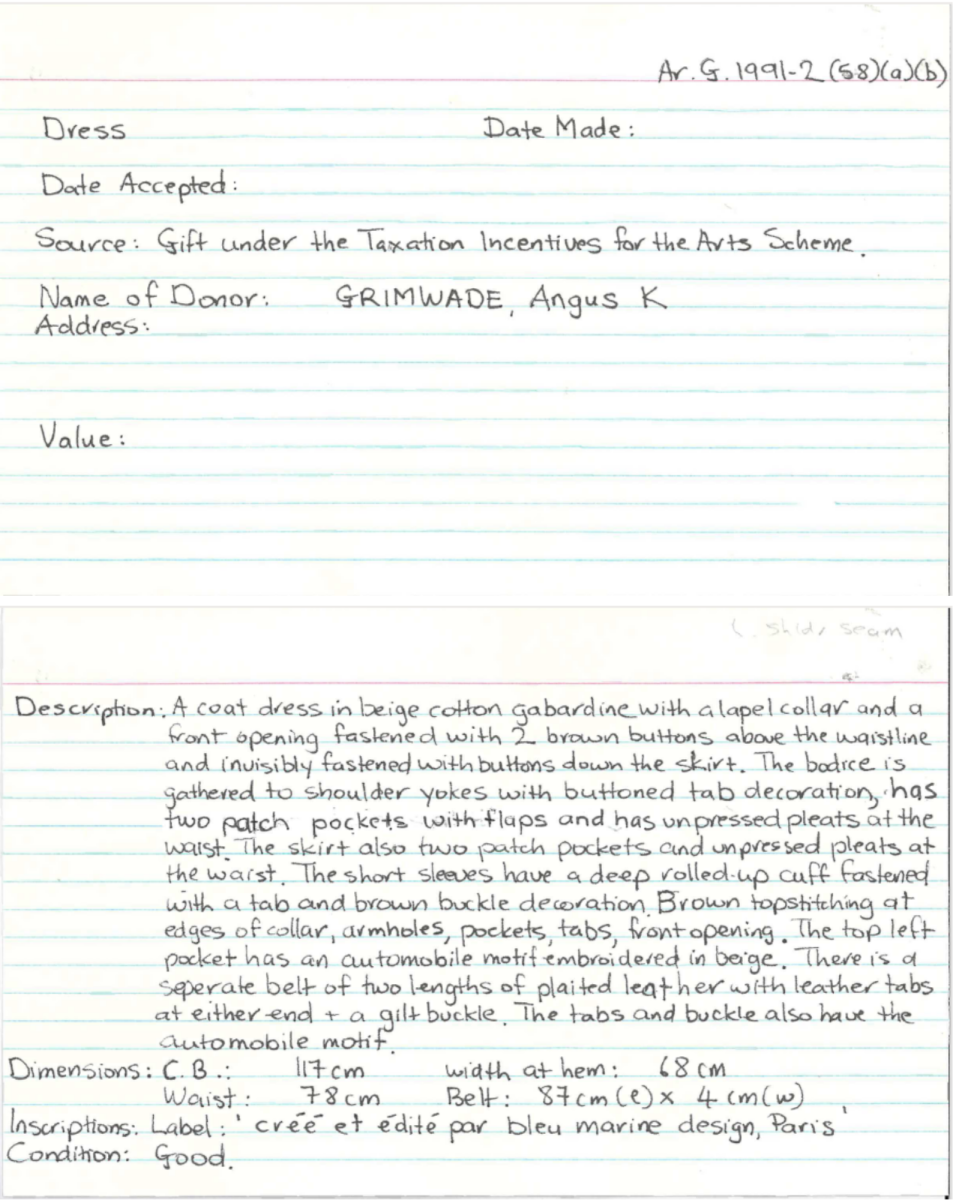 Ar. G. 1991-2 (58)(a)(b)
Dress Date Made:
Date Accepted:
Source: Gift under the Taxation Incentives for the Arts Scheme.
Name of Donor: GRIMWADE, Angus K
Address:
Value:
shldr seam
Description: A coat dress in beige cotton gabardine with a lapel collar and a
front opening fastened with 2 brown buttons above the waistline
and invisibly fastened with buttons down the skirt. The bodice is
gathered to shoulder yokes with buttoned tab decoration, has
two patch pockets with flaps and has unpressed pleats at the
waist. The skirt also two patch pockets and unpressed pleats at
the waist. The short sleeves have a deep rolled-up cuff fastened
with a tab and brown buckle decoration. Brown topstitching at
edges of collar, armholes, pockets, tabs, front opening. The top left
pocket has an automobile motif embroidered in beige. There is a
seperate belt of two lengths of plaited leather with leather tabs
at either end + a gilt buckle. The tabs and buckle also have the
automobile motif.
Dimensions: C.B.: 117 cm width at hem: 68 cm
Waist: 78 cm Belt: 87 cm (l) x 4 cm (w)
Inscriptions: Label: 'créé et édité par bleu marine design, Paris'
Condition: Good.